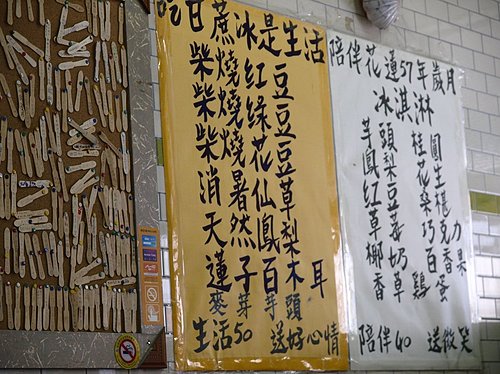 吃甘蔗冰是生活
柴燒紅豆
柴燒綠豆
柴燒花豆
消暑仙草
天然鳳梨
蓮子百木耳
麥芽芋頭
生活50 送好心情
陪伴花蓮57年歲月
冰淇淋
芋頭 桂圓
鳳梨 花生
紅豆 桑椹
草莓 巧克力
椰奶 百香果
香草 雞蛋
陪伴40 送微笑